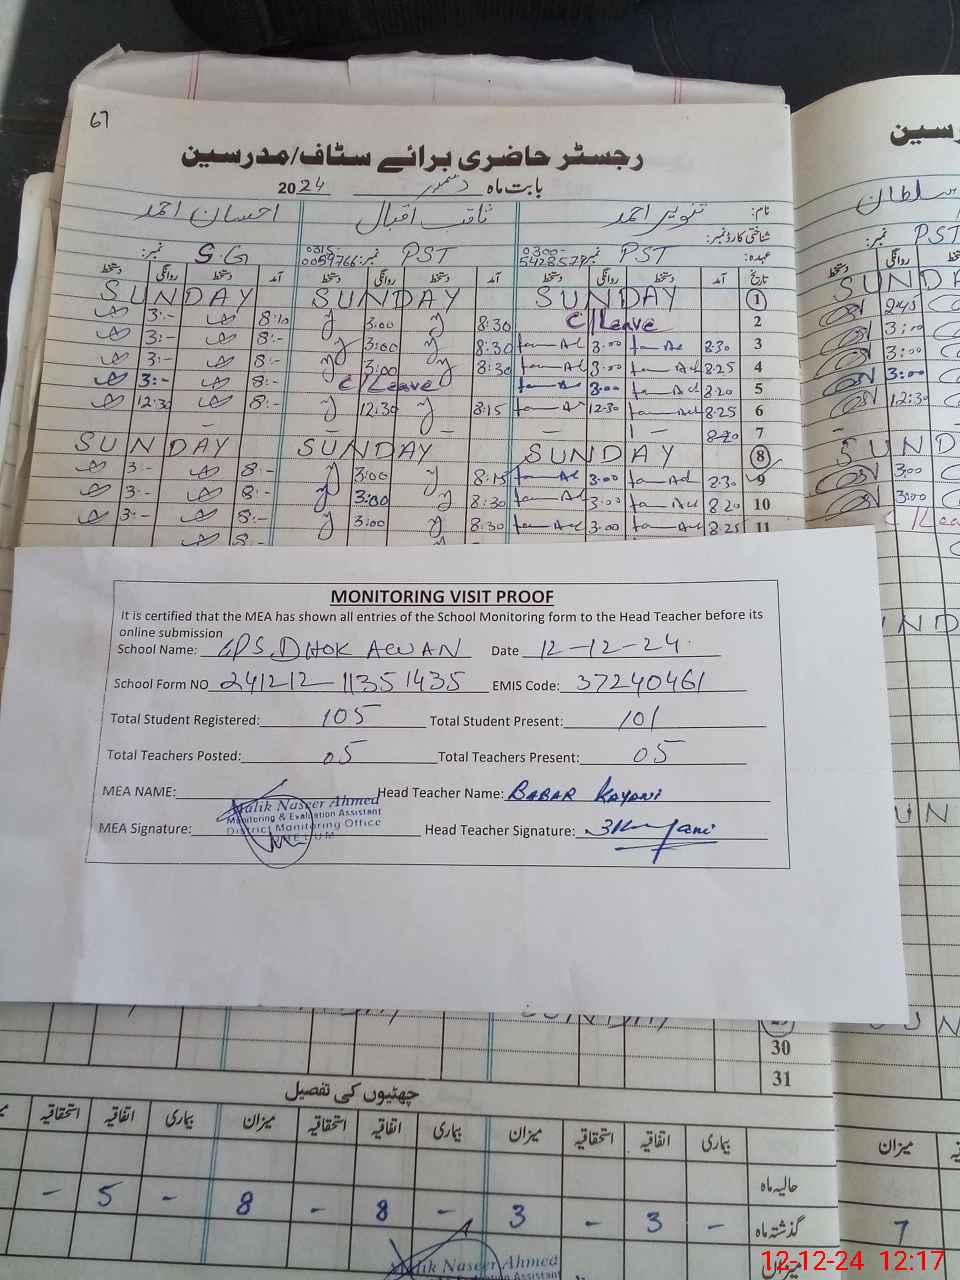 67
رجسٹر حاضری برائے سٹاف/مدرسین
بابت ماہ دسمبر 2024
نام: تنویر احمد ثاقب اقبال احسان احمد
شناختی کارڈ نمبر:
عہدہ: PST نمبر 0300-5428579 PST نمبر: 0315-0059766 S.G نمبر:
تاریخ آمد دستخط روانگی دستخط آمد دستخط روانگی دستخط آمد دستخط روانگی دستخط
SUNDAY SUNDAY SUNDAY 1
3:- 8:10 3:00 8:30 C/Leave 2
3:- 8:- 3:00 8:30 3:00 8:30 3
3:- 8:- 3:00 8:30 3:00 8:25 4
3:- 8:- C/Leave 3:00 8:20 5
12:30 8:- 12:30 8:15 12:30 8:25 6
- - - 1 - 8:20 7
SUNDAY SUNDAY SUNDAY 8
3:- 8:- 3:00 8:15 3:00 8:30 9
3:- 8:- 3:00 8:30 3:00 8:20 10
3:- 8:- 3:00 8:30 3:00 8:25 11
8:-
رسین
سلطان
نمبر: PST
دستخط روانگی
SUNDA
2:45
3:00
3:00
3:00
12:30
SUND
3:00
3:00
C/Lea
UND
UN
MONITORING VISIT PROOF
It is certified that the MEA has shown all entries of the School Monitoring form to the Head Teacher before its
online submission
School Name: GPS. DHOK AWAN Date 12-12-24.
School Form NO 241212-11351435 EMIS Code: 37240461
Total Student Registered: 105 Total Student Present: 101
Total Teachers Posted: 05 Total Teachers Present: 05
MEA NAME: Head Teacher Name: BABAR KAYANI
Malik Naseer Ahmed
Monitoring & Evaluation Assistant
District Monitoring Office
JHELUM
MEA Signature: Head Teacher Signature:
SUNDAY 29
SUN
30
31
چھٹیوں کی تفصیل
بیماری اتفاقیہ استحقاقیہ میزان بیماری اتفاقیہ استحقاقیہ میزان بیماری اتفاقیہ استحقاقیہ
میزان
حالیہ ماہ
گذشتہ ماہ - 3 - 3 - 8 - 8 - 5 -
7
میزان
Malik Naseer Ahmed
12-12-24 12:17